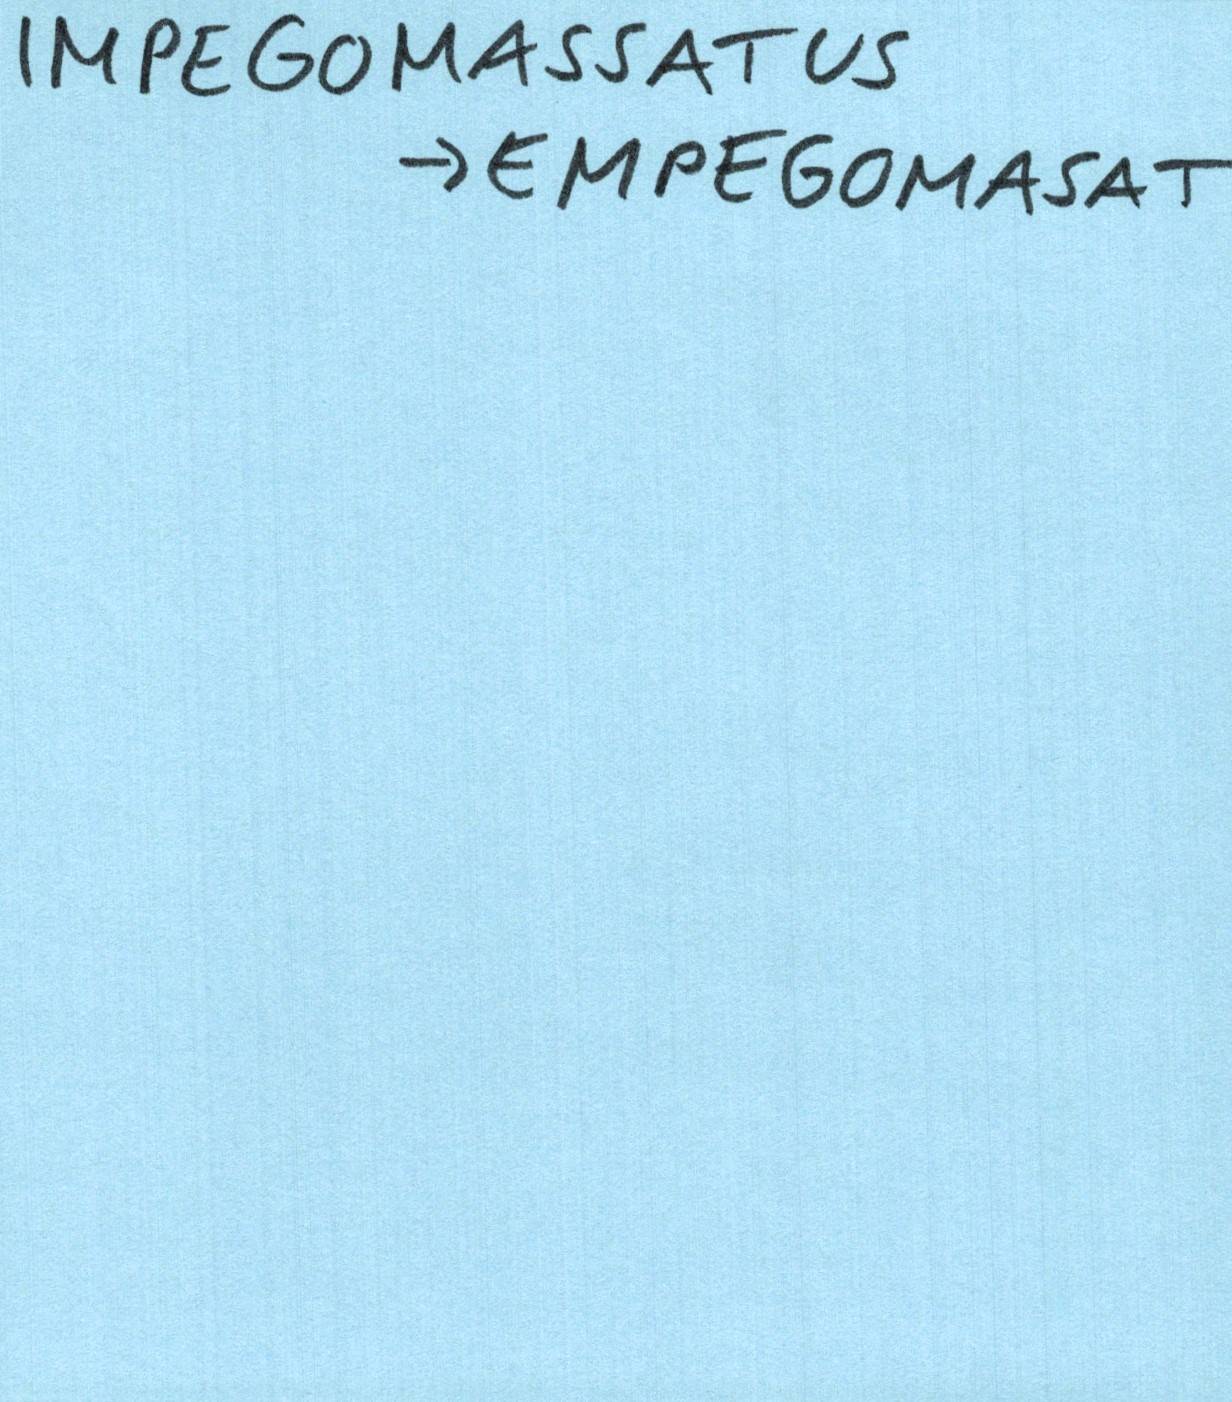 IMPEGOMASSATUS
→ EMPEGOMASAT